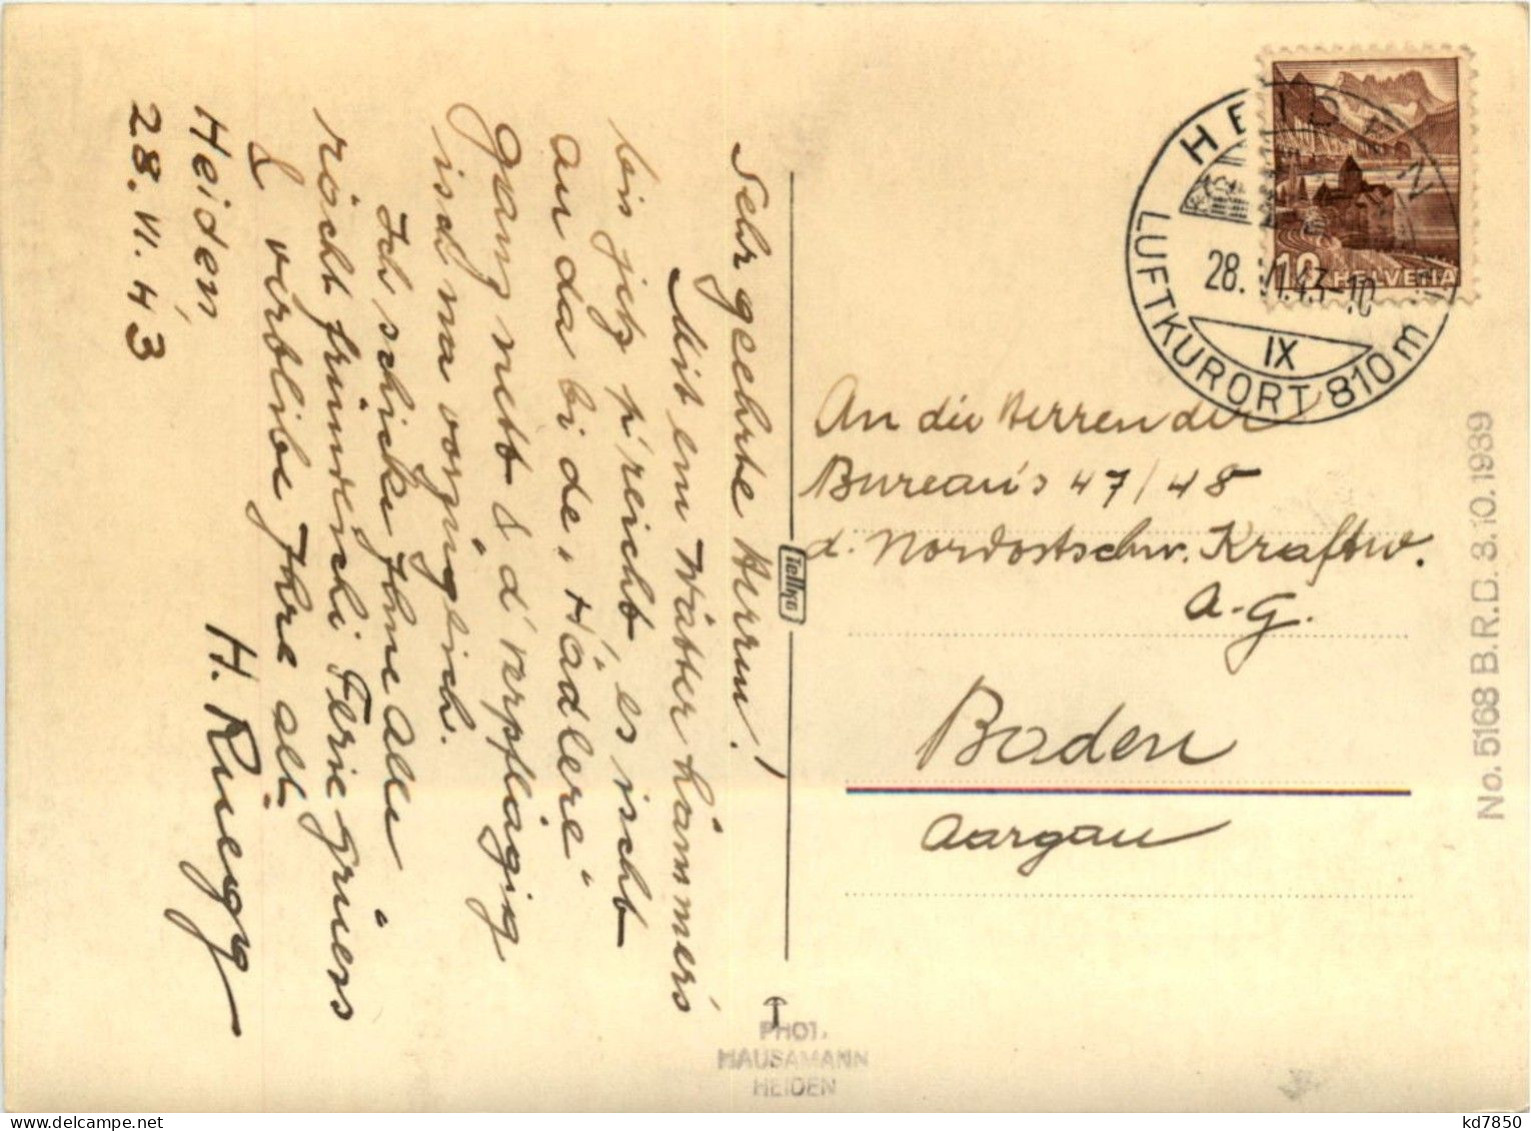 Sehr geehrte Herren!
Mit em Wätter hämmer's
bis jetz p'reicht, es ischt
au da bi de „Hädlere“
ganz nett & d'verpflägig
isch na vorzüglich.
Ich schicke Ihne alle
röcht fründschi Ferie grüess
& virblibe Ihre alt
H. Rüegg
Heiden,
28. VI. 43
HEIDEN
28. VI. 43-10
IX
LUFTKURORT 810 m
10 HELVETIA
An die Herren der
Bureau's 47/48
d. Nordostschw. Kraftw.
A.-G.
Baden
Aargau
Tellko
No. 5168 B.R.D. 3.10.1939
PHOT.
HAUSAMANN
HEIDEN
kd7850